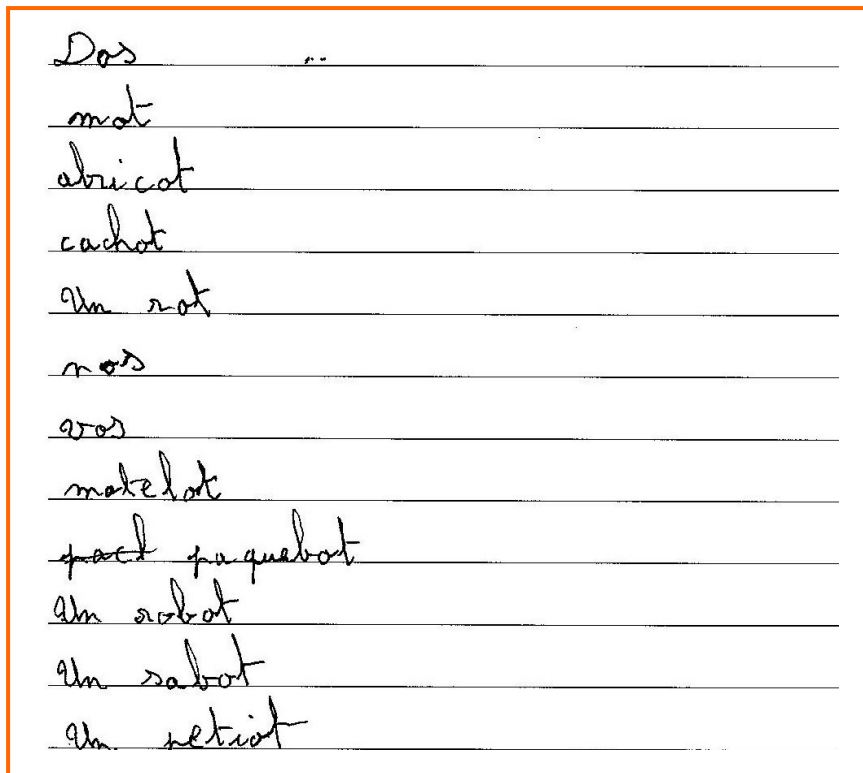 Dos
mot
abricot
cachot
Un rot
nos
vos
matelot
pacl paquebot
Un robot
Un sabot
Un petiot